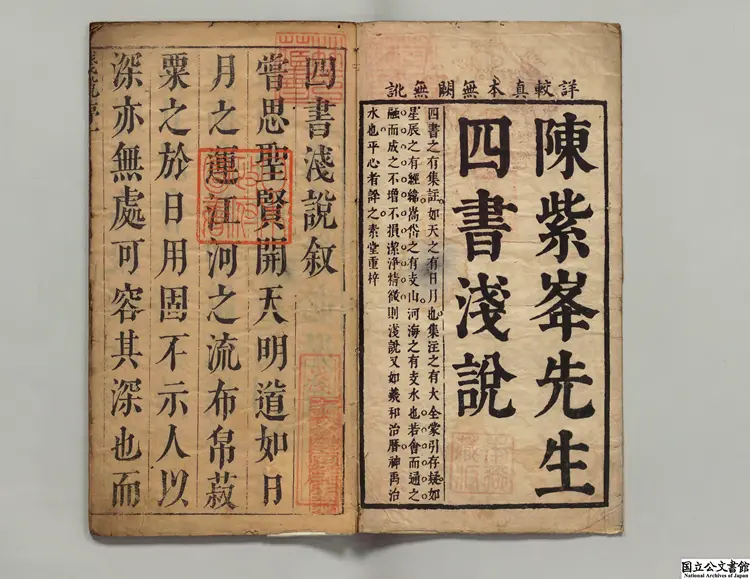 詳較真本無闕無訛
陳紫峯先生
四書淺說
四書之有集註如天之有日月也集注之有大全蒙引存疑如
星辰之有經緯嵩岱之有支山河海之有支水也若會而通之
融而成之不增不損潔淨精微則淺說又如羲和治曆神禹治
水也平心者繹之素堂重梓
四書淺說叙
嘗思聖賢開天明道如日
月之運江河之流布帛菽
粟之於日用固不示人以
深亦無處可容其深也而
国立公文書館
National Archives of Japan